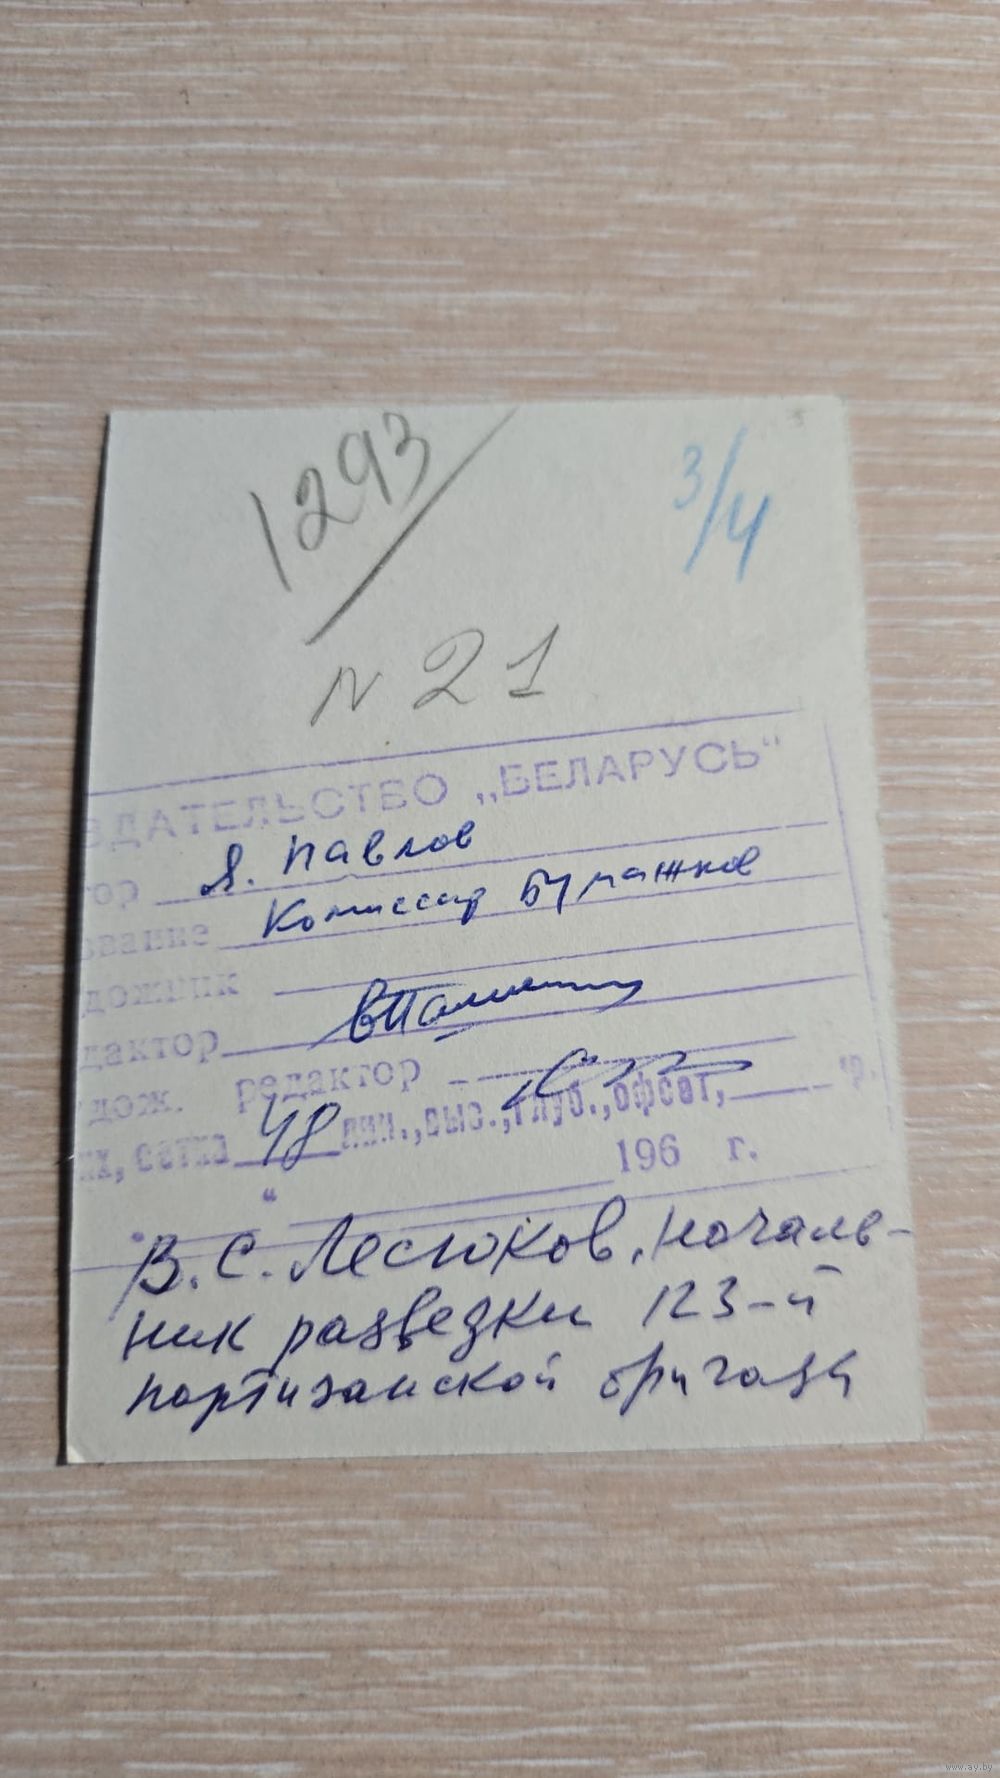 1293
3/4
N 21
ЗДАТЕЛЬСТВО „БЕЛАРУСЬ“
тор Я. Павлов
ование Комиссар Бумажков
дожник
дактор
дож. редактор
их, сетка 48 лин., выс., глуб., офсет, "р.
" " 196 г.
В. С. Лесюков, началь-
ник разведки 123-й
партизанской бригады
www.ay.by